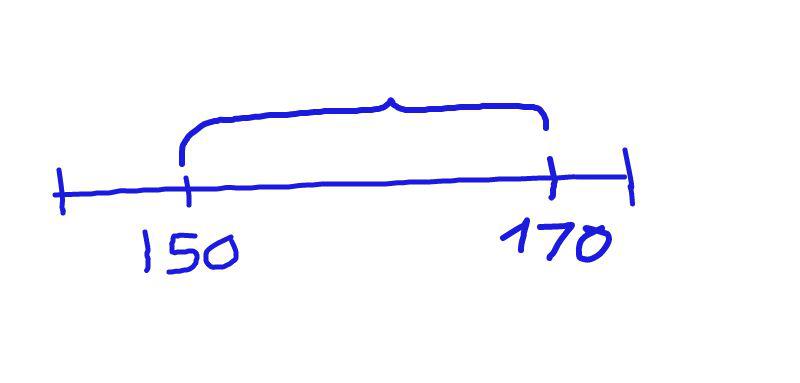 150 170